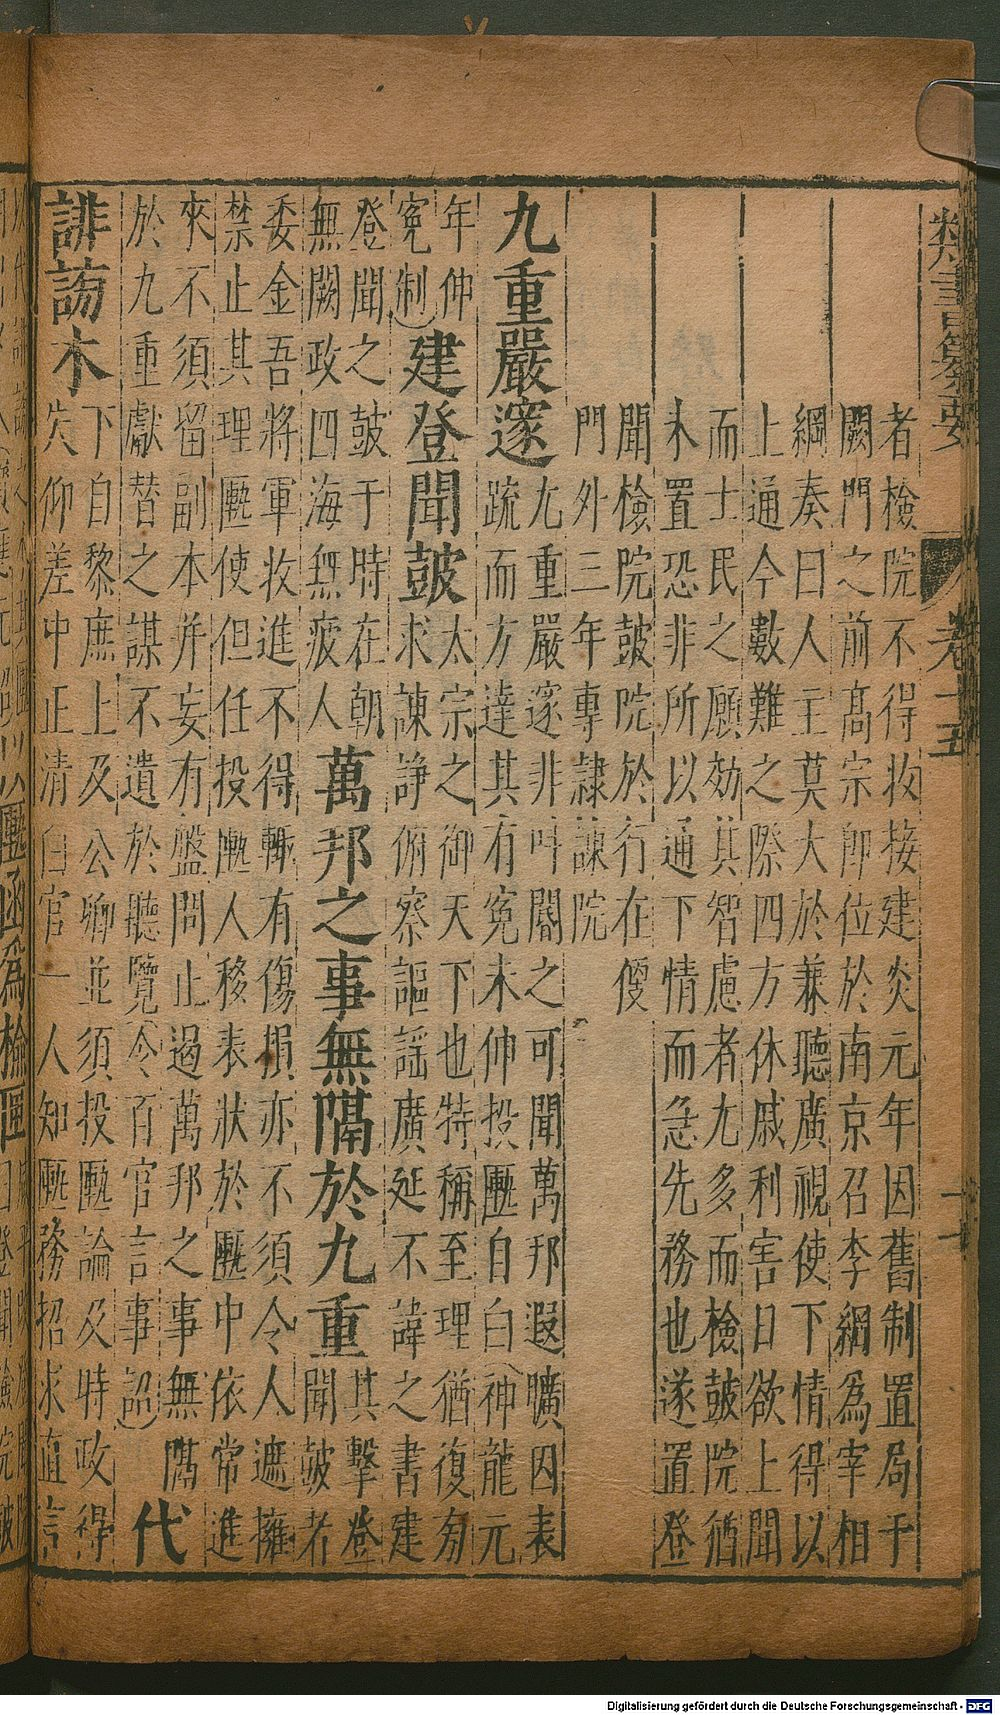 類書纂要 卷十五
者檢院不得收接建炎元年因舊制置局于
闕門之前高宗卽位於南京召李綱為宰相
綱奏曰人主莫大於兼聽廣視使下情得以
上通今數難之際四方休戚利害日欲上聞
而士民之願効其智慮者尤多而檢鼓院猶
未置恐非所以通下情而急先務也遂置登
聞檢院鼓院於行在便
門外三年專隸諫院
九重嚴邃
九重嚴邃非叫閽之可聞萬邦遐曠囚表
疏而方達其有寃未伸投匭自白(神龍元
年仲
寃制)
建登聞鼓
太宗之御天下也特稱至理猶復芻
求諫諍俯察謳謡廣延不諱之書建
登聞之鼓于時在朝
無闕政四海無疲人
萬邦之事無隔於九重
其擊登
聞鼓者
委金吾將軍收進不得輙有傷損亦不須令人遮擁
禁止其理匭使但任投匭人移表狀於匭中依常進
來不須留副本并妄有盤問止遏萬邦之事無隔
於九重獻替之謀不遺於聽覽(令百官言事詔)
代
誹謗木
下自黎庶上及公卿並須投匭論及時政得
失仰差中正清白官一人知匭務招求直言
匭函為檢匣
Digitalisierung gefördert durch die Deutsche Forschungsgemeinschaft - DFG